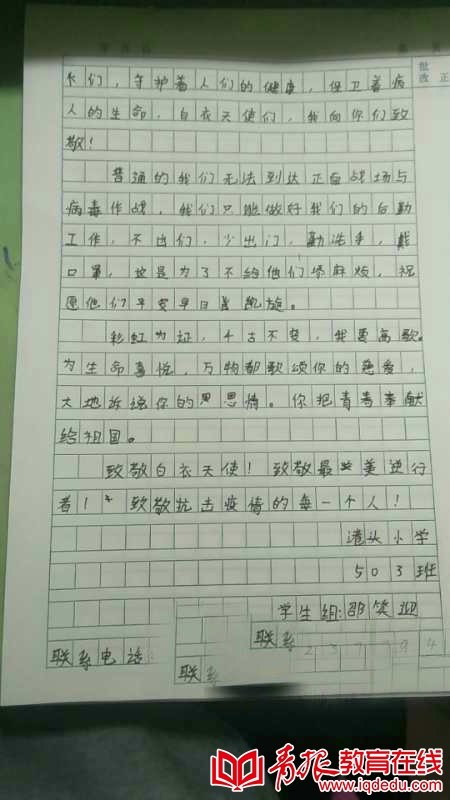 批
改 正
们,守护着人们的健康,保卫着病
人的生命,白衣天使们,我向你们致
敬!
普通的我们无法到达正面战场与
病毒作战,我们只能做好我们的后勤
工作,不出们,少出门,勤洗手,戴
口罩,这是为了不给他们添麻烦,祝
愿他们平安早日凯旋。
彩虹为证,千古不变,我要高歌。
为生命喜悦,万物都歌颂你的慈爱,
大地诉说你的恩思情。你把青春奉献
给祖国。
致敬白衣天使!致敬最美逆行
者!致敬抗击疫情的每一个人!
港头小学
503班
学生组:邵笑迎
联系
联系电话
联系
青报教育在线
www.iqdedu.com